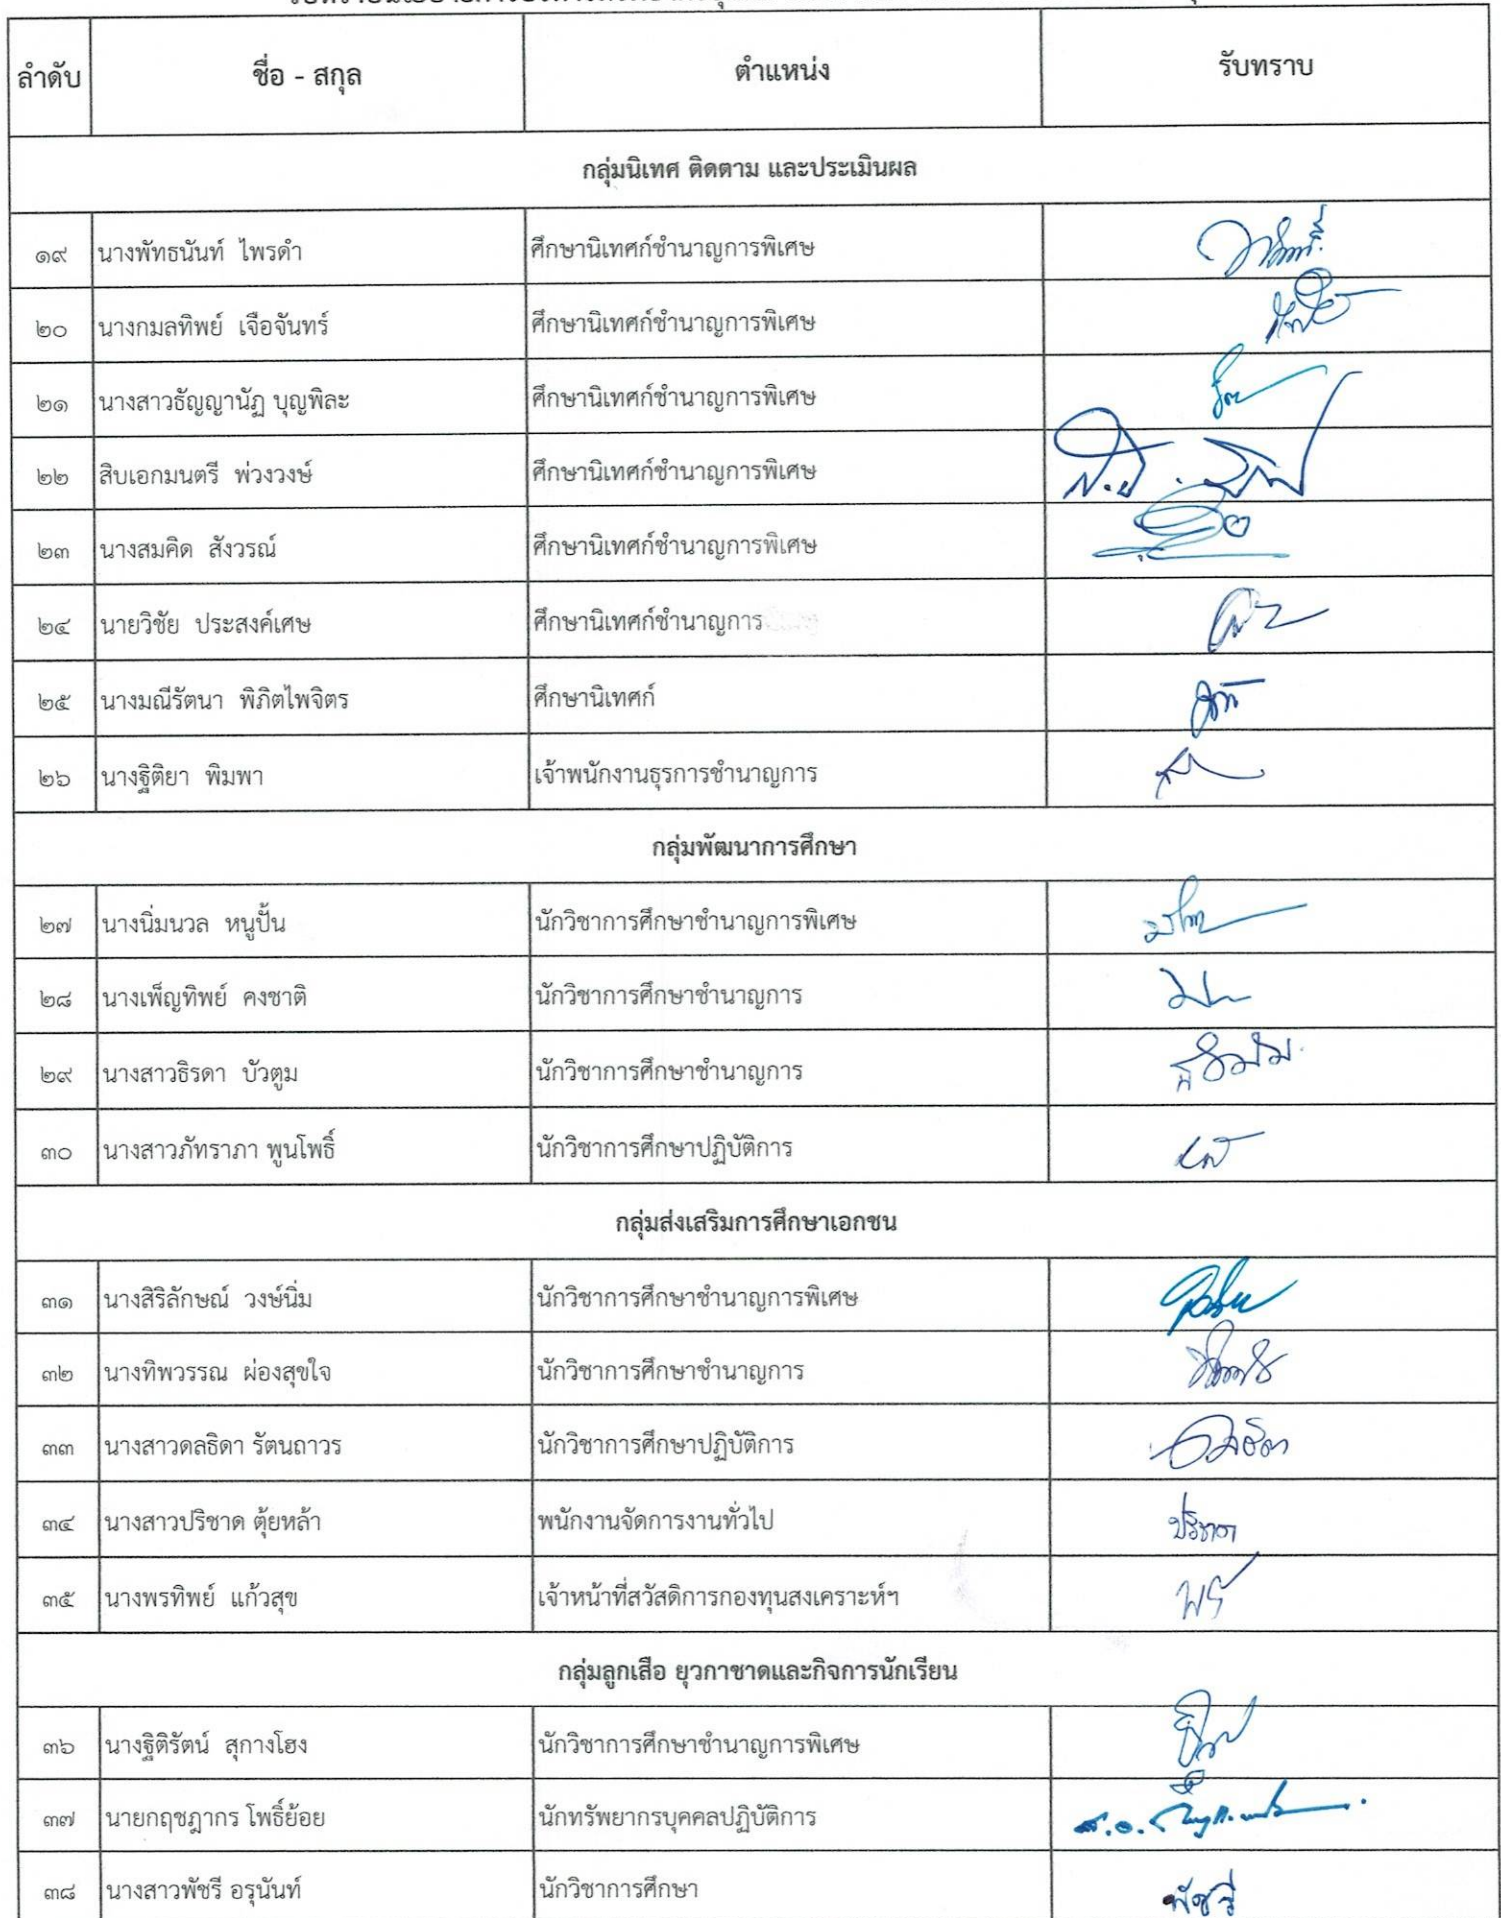 ลำดับ ชื่อ - สกุล ตำแหน่ง รับทราบ
กลุ่มนิเทศ ติดตาม และประเมินผล
๑๙ นางพัทธนันท์ ไพรดำ ศึกษานิเทศก์ชำนาญการพิเศษ
๒๐ นางกมลทิพย์ เจือจันทร์ ศึกษานิเทศก์ชำนาญการพิเศษ
๒๑ นางสาวธัญญานัฏ บุญพิละ ศึกษานิเทศก์ชำนาญการพิเศษ
๒๒ สิบเอกมนตรี พ่วงวงษ์ ศึกษานิเทศก์ชำนาญการพิเศษ
๒๓ นางสมคิด สังวรณ์ ศึกษานิเทศก์ชำนาญการพิเศษ
๒๔ นายวิชัย ประสงค์เศษ ศึกษานิเทศก์ชำนาญการ
๒๕ นางมณีรัตนา พิภิตไพจิตร ศึกษานิเทศก์
๒๖ นางฐิติยา พิมพา เจ้าพนักงานธุรการชำนาญการ
กลุ่มพัฒนาการศึกษา
๒๗ นางนิ่มนวล หนูปั้น นักวิชาการศึกษาชำนาญการพิเศษ
๒๘ นางเพ็ญทิพย์ คงชาติ นักวิชาการศึกษาชำนาญการ
๒๙ นางสาวธิรดา บัวตูม นักวิชาการศึกษาชำนาญการ
๓๐ นางสาวภัทราภา พูนโพธิ์ นักวิชาการศึกษาปฏิบัติการ
กลุ่มส่งเสริมการศึกษาเอกชน
๓๑ นางสิริลักษณ์ วงษ์นิ่ม นักวิชาการศึกษาชำนาญการพิเศษ
๓๒ นางทิพวรรณ ผ่องสุขใจ นักวิชาการศึกษาชำนาญการ
๓๓ นางสาวดลธิดา รัตนถาวร นักวิชาการศึกษาปฏิบัติการ
๓๔ นางสาวปริชาด ตุ้ยหล้า พนักงานจัดการงานทั่วไป
๓๕ นางพรทิพย์ แก้วสุข เจ้าหน้าที่สวัสดิการกองทุนสงเคราะห์ฯ
กลุ่มลูกเสือ ยุวกาชาดและกิจการนักเรียน
๓๖ นางฐิติรัตน์ สุกางโฮง นักวิชาการศึกษาชำนาญการพิเศษ
๓๗ นายกฤชฎากร โพธิ์ย้อย นักทรัพยากรบุคคลปฏิบัติการ
๓๘ นางสาวพัชรี อรุนันท์ นักวิชาการศึกษา พัชรี